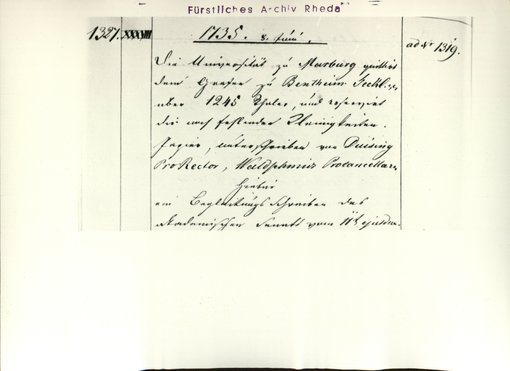 Fürstliches Archiv Rheda
1327. XXXVIII 1735. 8. Juni. ad Nr 1319.
Die Universität zu Marburg quittirt
dem Grafen zu Bentheim Teckl.
über 1245 Thaler, und reservirt
die noch fehlenden Kleinigkeiten.
Papier, unterschrieben von Duising
ProRector, Waldschmiz Procancellar
hierbei
ein Beglückungs Schreiben des
Akademischen Senats vom 11t ejusdem